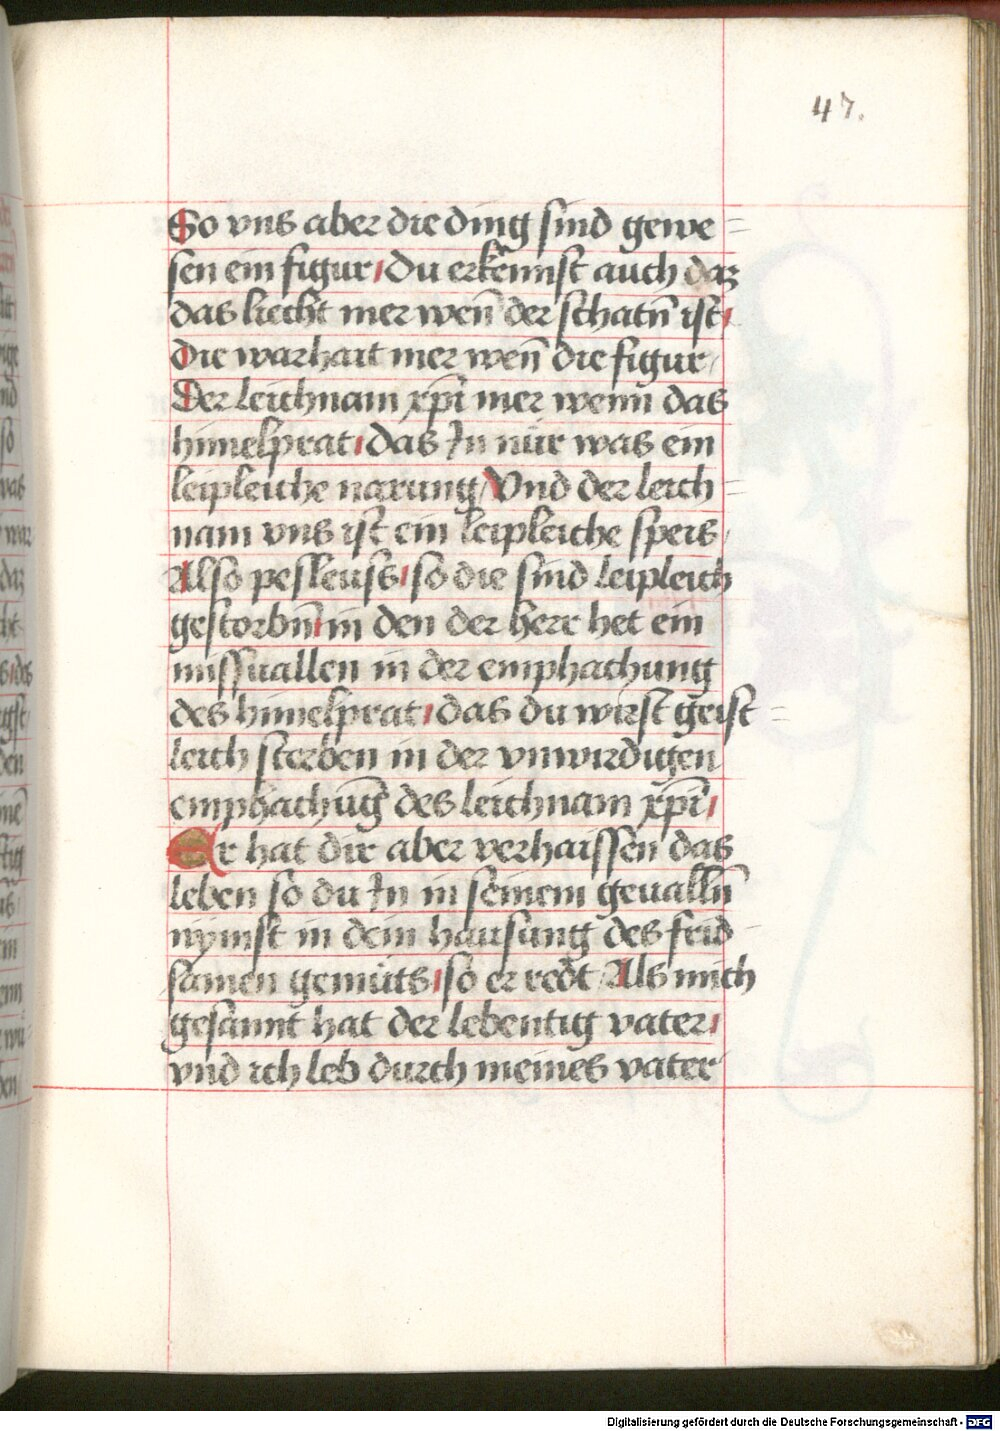 47.
So vns aber die ding sind gewe=
sen ein figur / Du erkennst auch daz
das liecht mer wen̄ der schatn̄ ist /
Die warhait mer wen̄ die figur /
Der leichnam xp̄i mer wenn das
himelprat / das In nůr was ein
leipleiche narung / Vnd der leich=
nam vns ist ein leipleiche speis /
Also pesleuss / so die sind leipleich
gestorbn̄ / in den der herr het ein
missuallen in der emphachung
des himelprat / das du wirst geist=
leich sterben in der vnwirdigen
emphachūg des leichnam xp̄i /
Er hat dir aber verhaissen das
leben so du In in seinem geualln̄
nÿmst in dein hausung des frid=
samen gemüts / so er redt / Als mich
gesannt hat der lebentig vater /
vnd ich leb durch meines vater
Digitalisierung gefördert durch die Deutsche Forschungsgemeinschaft - DFG